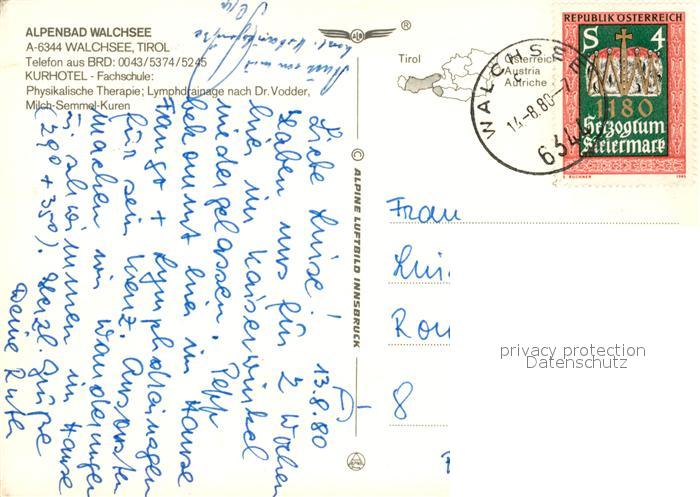 ALPENBAD WALCHSEE
A-6344 WALCHSEE, TIROL
Telefon aus BRD: 0043/5374/5245
KURHOTEL - Fachschule:
Physikalische Therapie; Lymphdrainage nach Dr. Vodder,
Milch-Semmel-Kuren
®
Tirol
Österreich
Austria
Autriche
WALCHSEE
14.-8.80-7
6344
REPUBLIK ÖSTERREICH
S 4
1180
Herzogtum
Steiermark
13.8.80
Liebe Luise!
Haben uns für 2 Wochen
hier im Kaiserwinkel
niedergelassen. Pepp
bekommt hier im Hause
Fango + Lymphdrainagen
für sein Kreuz. Ansonsten
machen wir Wanderungen
u. schwimmen im Hause
(29° + 35°). Herzl. Grüße
Deine Ruth
Auch von mir
© ALPINE LUFTBILD INNSBRUCK
Frau
Lui
Rou
8
privacy protection
Datenschutz